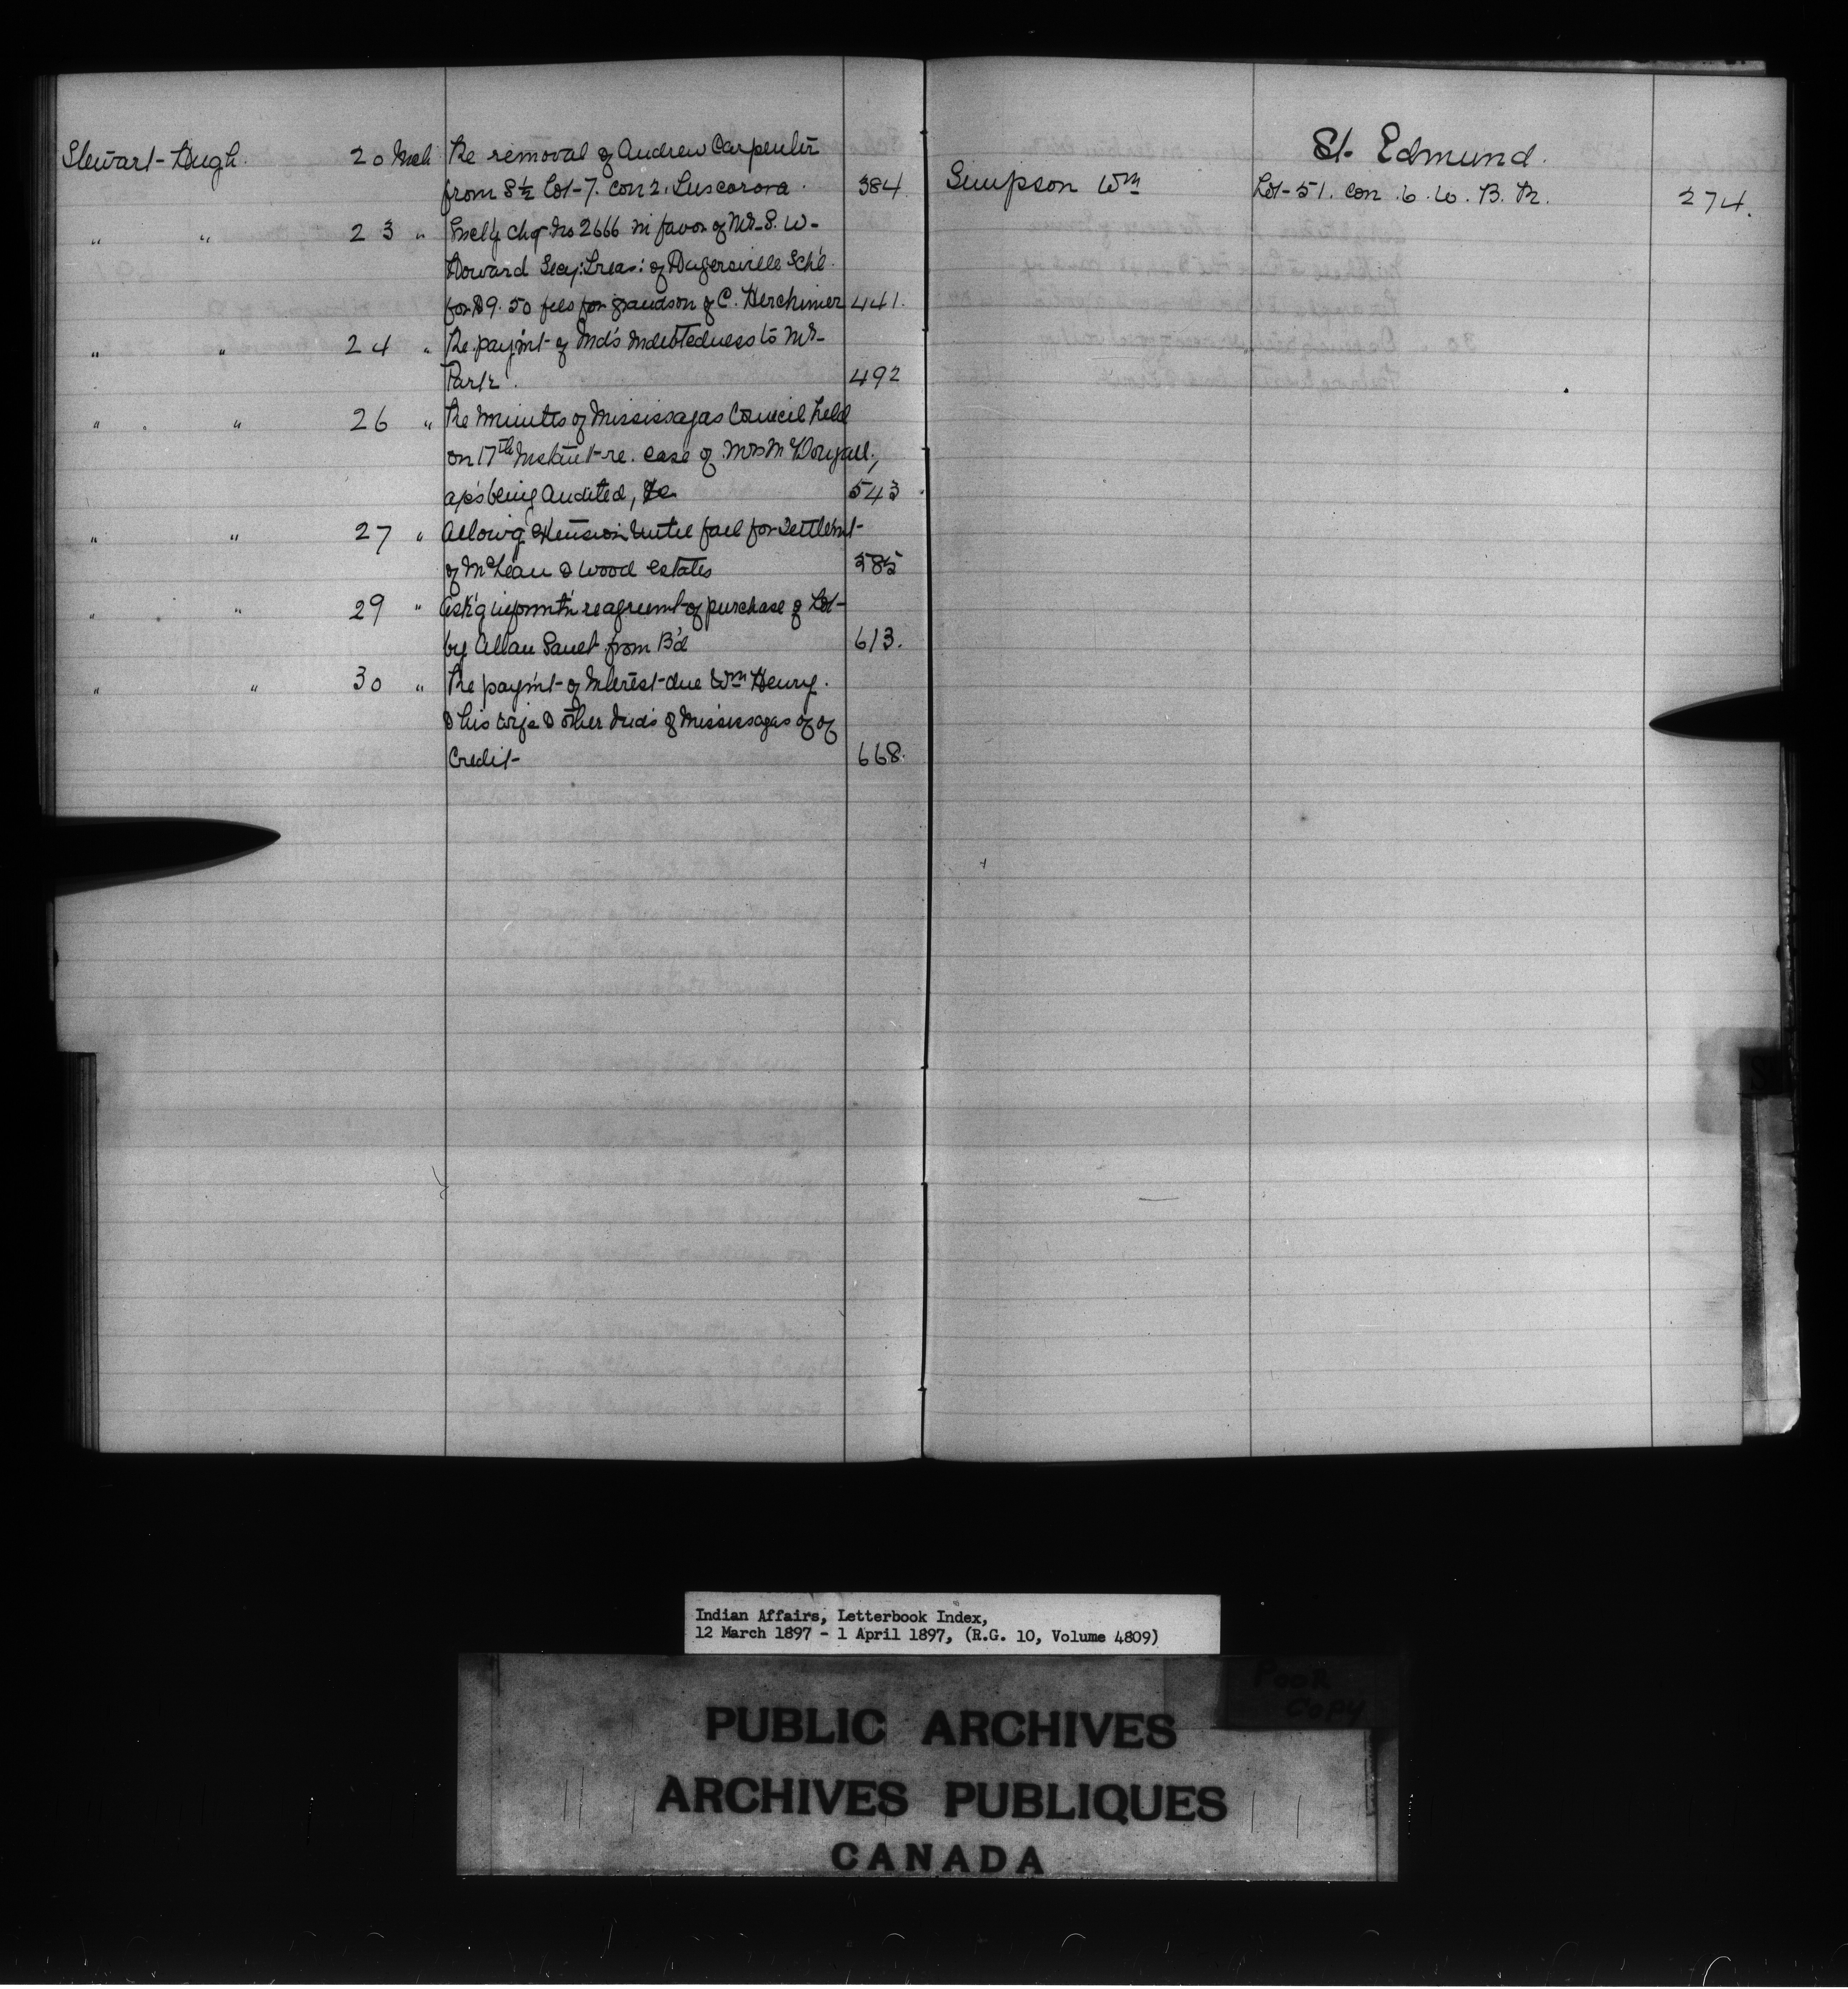 Stewart Hugh. 20 Mch Re removal of Andrew Carpenter
from S½ Lot 7. con 2. Tuscarora. 384
" " 23 " Encl'g chq. No 2666 in favor of Mr. S. W.
Howard Secy: Treas: of Hagersville Sch'l
for $9.50 fees for grandson of C. Herchimer 441.
" " 24 " Re paym't of Ind's indebtedness to Mr.
Park. 492
" " 26 " Re minutes of Mississagas Council held
on 17th Instant re. case of Mrs McDougall,
being Audited, &c 543
" " 27 " Allow'g extension until fall for settlem't
of McLean & Wood estates 585
" " 29 " Ask'g inform't'n re agreem't of purchase of Lot
by Allan from B'd 613.
" " 30 " Re paym't of Interest due Wm Henry.
& his wife & other Ind's of Mississagas of of
Credit 668.
St. Edmund.
Simpson Wm Lot 51. con. 6. W. B. R. 274.
S
Indian Affairs, Letterbook Index,
12 March 1897 - 1 April 1897, (R.G. 10, Volume 4809)
POOR
COPY
PUBLIC ARCHIVES
ARCHIVES PUBLIQUES
CANADA